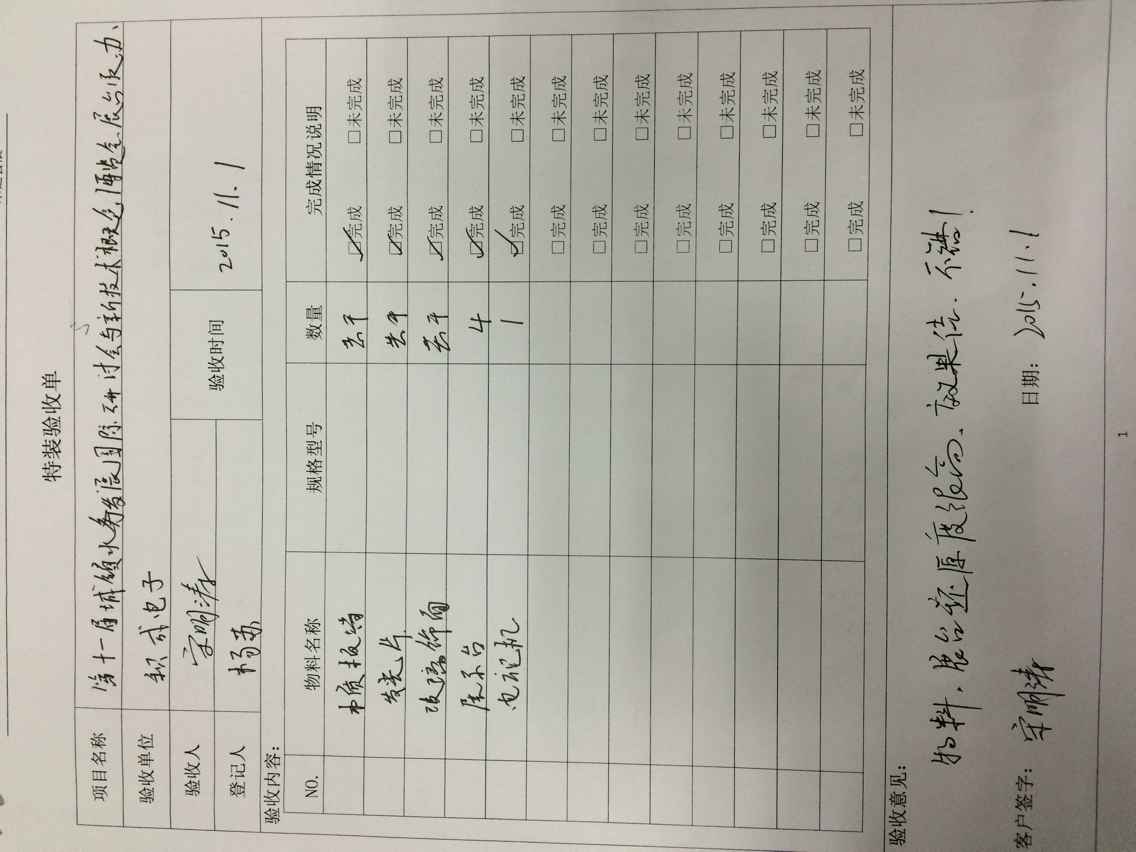 特装验收单
项目名称 第十一届城镇水务发展国际研讨会与新技术设备博览会展台
验收单位 积成电子
验收人 宋明涛 验收时间
登记人 杨苏 2015.11.1
验收内容:
NO. 物料名称 规格型号 数量 完成情况说明
木质板墙 若干 ☑完成 □未完成
发光片 若干 ☑完成 □未完成
玻璃饰面 若干 ☑完成 □未完成
展示台 4 ☑完成 □未完成
电视机 1 ☑完成 □未完成
□完成 □未完成
□完成 □未完成
□完成 □未完成
□完成 □未完成
□完成 □未完成
□完成 □未完成
□完成 □未完成
□完成 □未完成
验收意见:
物料、展台还原度很高、效果佳、不错!
客户签字: 宋明涛 日期: 2015.11.1
1